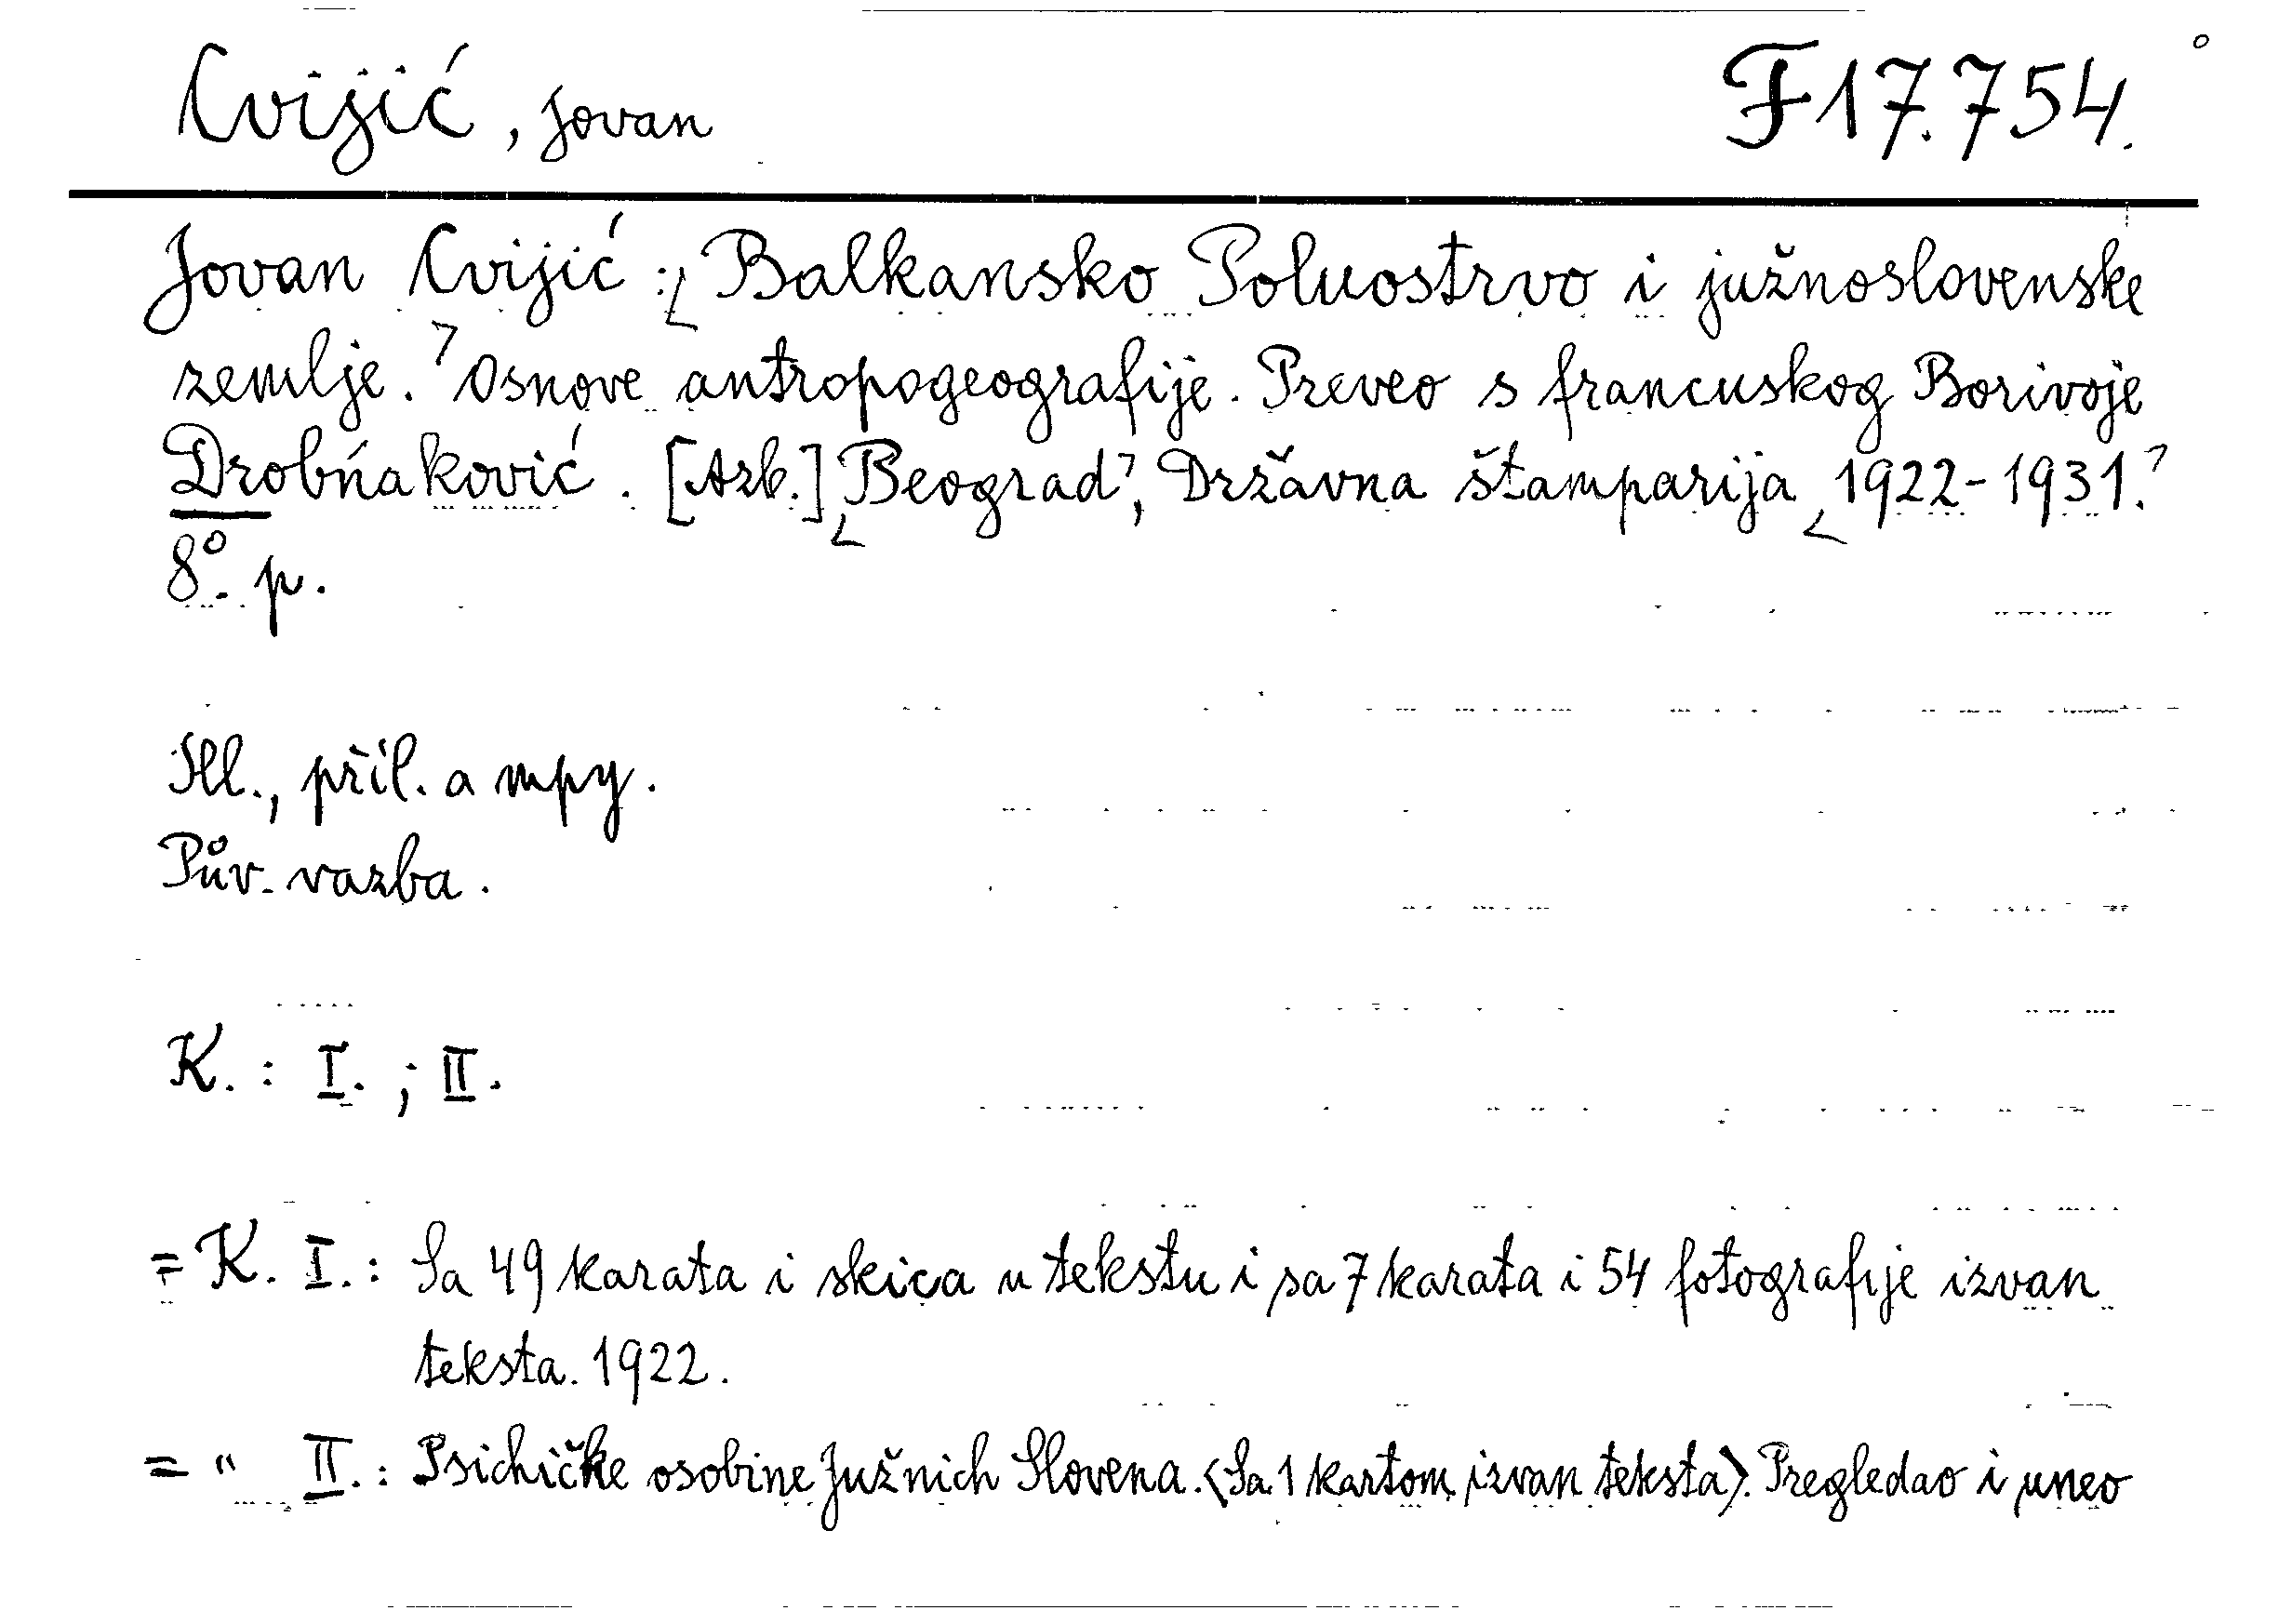 Cvijić, Jovan F 17.754.
Jovan Cvijić: Balkansko Poluostrvo i južnoslovenske
zemlje. Osnove antropogeografije. Preveo s francuskog Borivoje
Drobńaković. [Azb.] Beograd, Državna štamparija 1922-1931.
8°. p.
Ill., příl. a mpy.
Pův. vazba.
K.: I.; II.
= K. I.: Sa 49 karata i skica u tekstu i sa 7 karata i 54 fotografije izvan
teksta. 1922.
= " II.: Psichičke osobine Južnich Slovena. (Sa 1 kartom izvan teksta). Pregledao i uneo